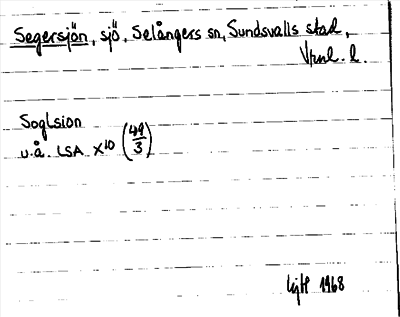 Segersjön, sjö, Selångers sn, Sundsvalls stad,
l.
Soglsion
u.å. LSA X10 (49/3)
1968